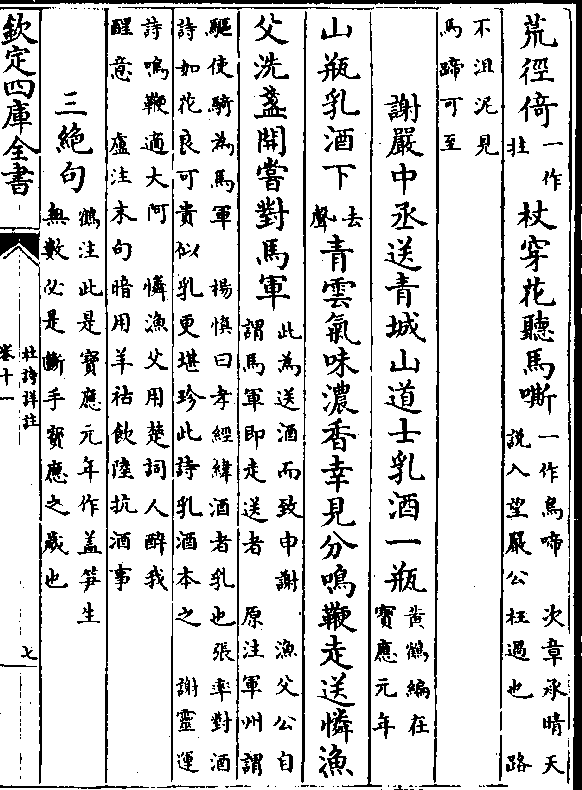 荒徑倚一作拄杖穿花聽馬嘶一作烏啼 次章承晴天說入望嚴公枉過也 路
不沮泥見馬蹄可至
謝嚴中丞送青城山道士乳酒一瓶黃鶴編在寶應元年
山瓶乳酒下去聲青雲氣味濃香幸見分鳴鞭走送憐漁
父洗盞開嘗對馬軍此為送酒而致中謝 漁父公自謂馬軍即走送者 原注軍州謂
驅使騎為馬軍 楊慎曰孝經緯酒者乳也張率對酒詩如花良可貴似乳更堪珍此詩乳酒本之 謝靈運
詩鳴鞭適大阿 憐漁父用楚詞人醉我醒意 盧注末句暗用羊祜飲陸抗酒事
三絕句鶴注此是寶應元年作蓋笋生無數父是斷手寶應之歲也
欽定四庫全書
杜詩詳註
卷十一
七